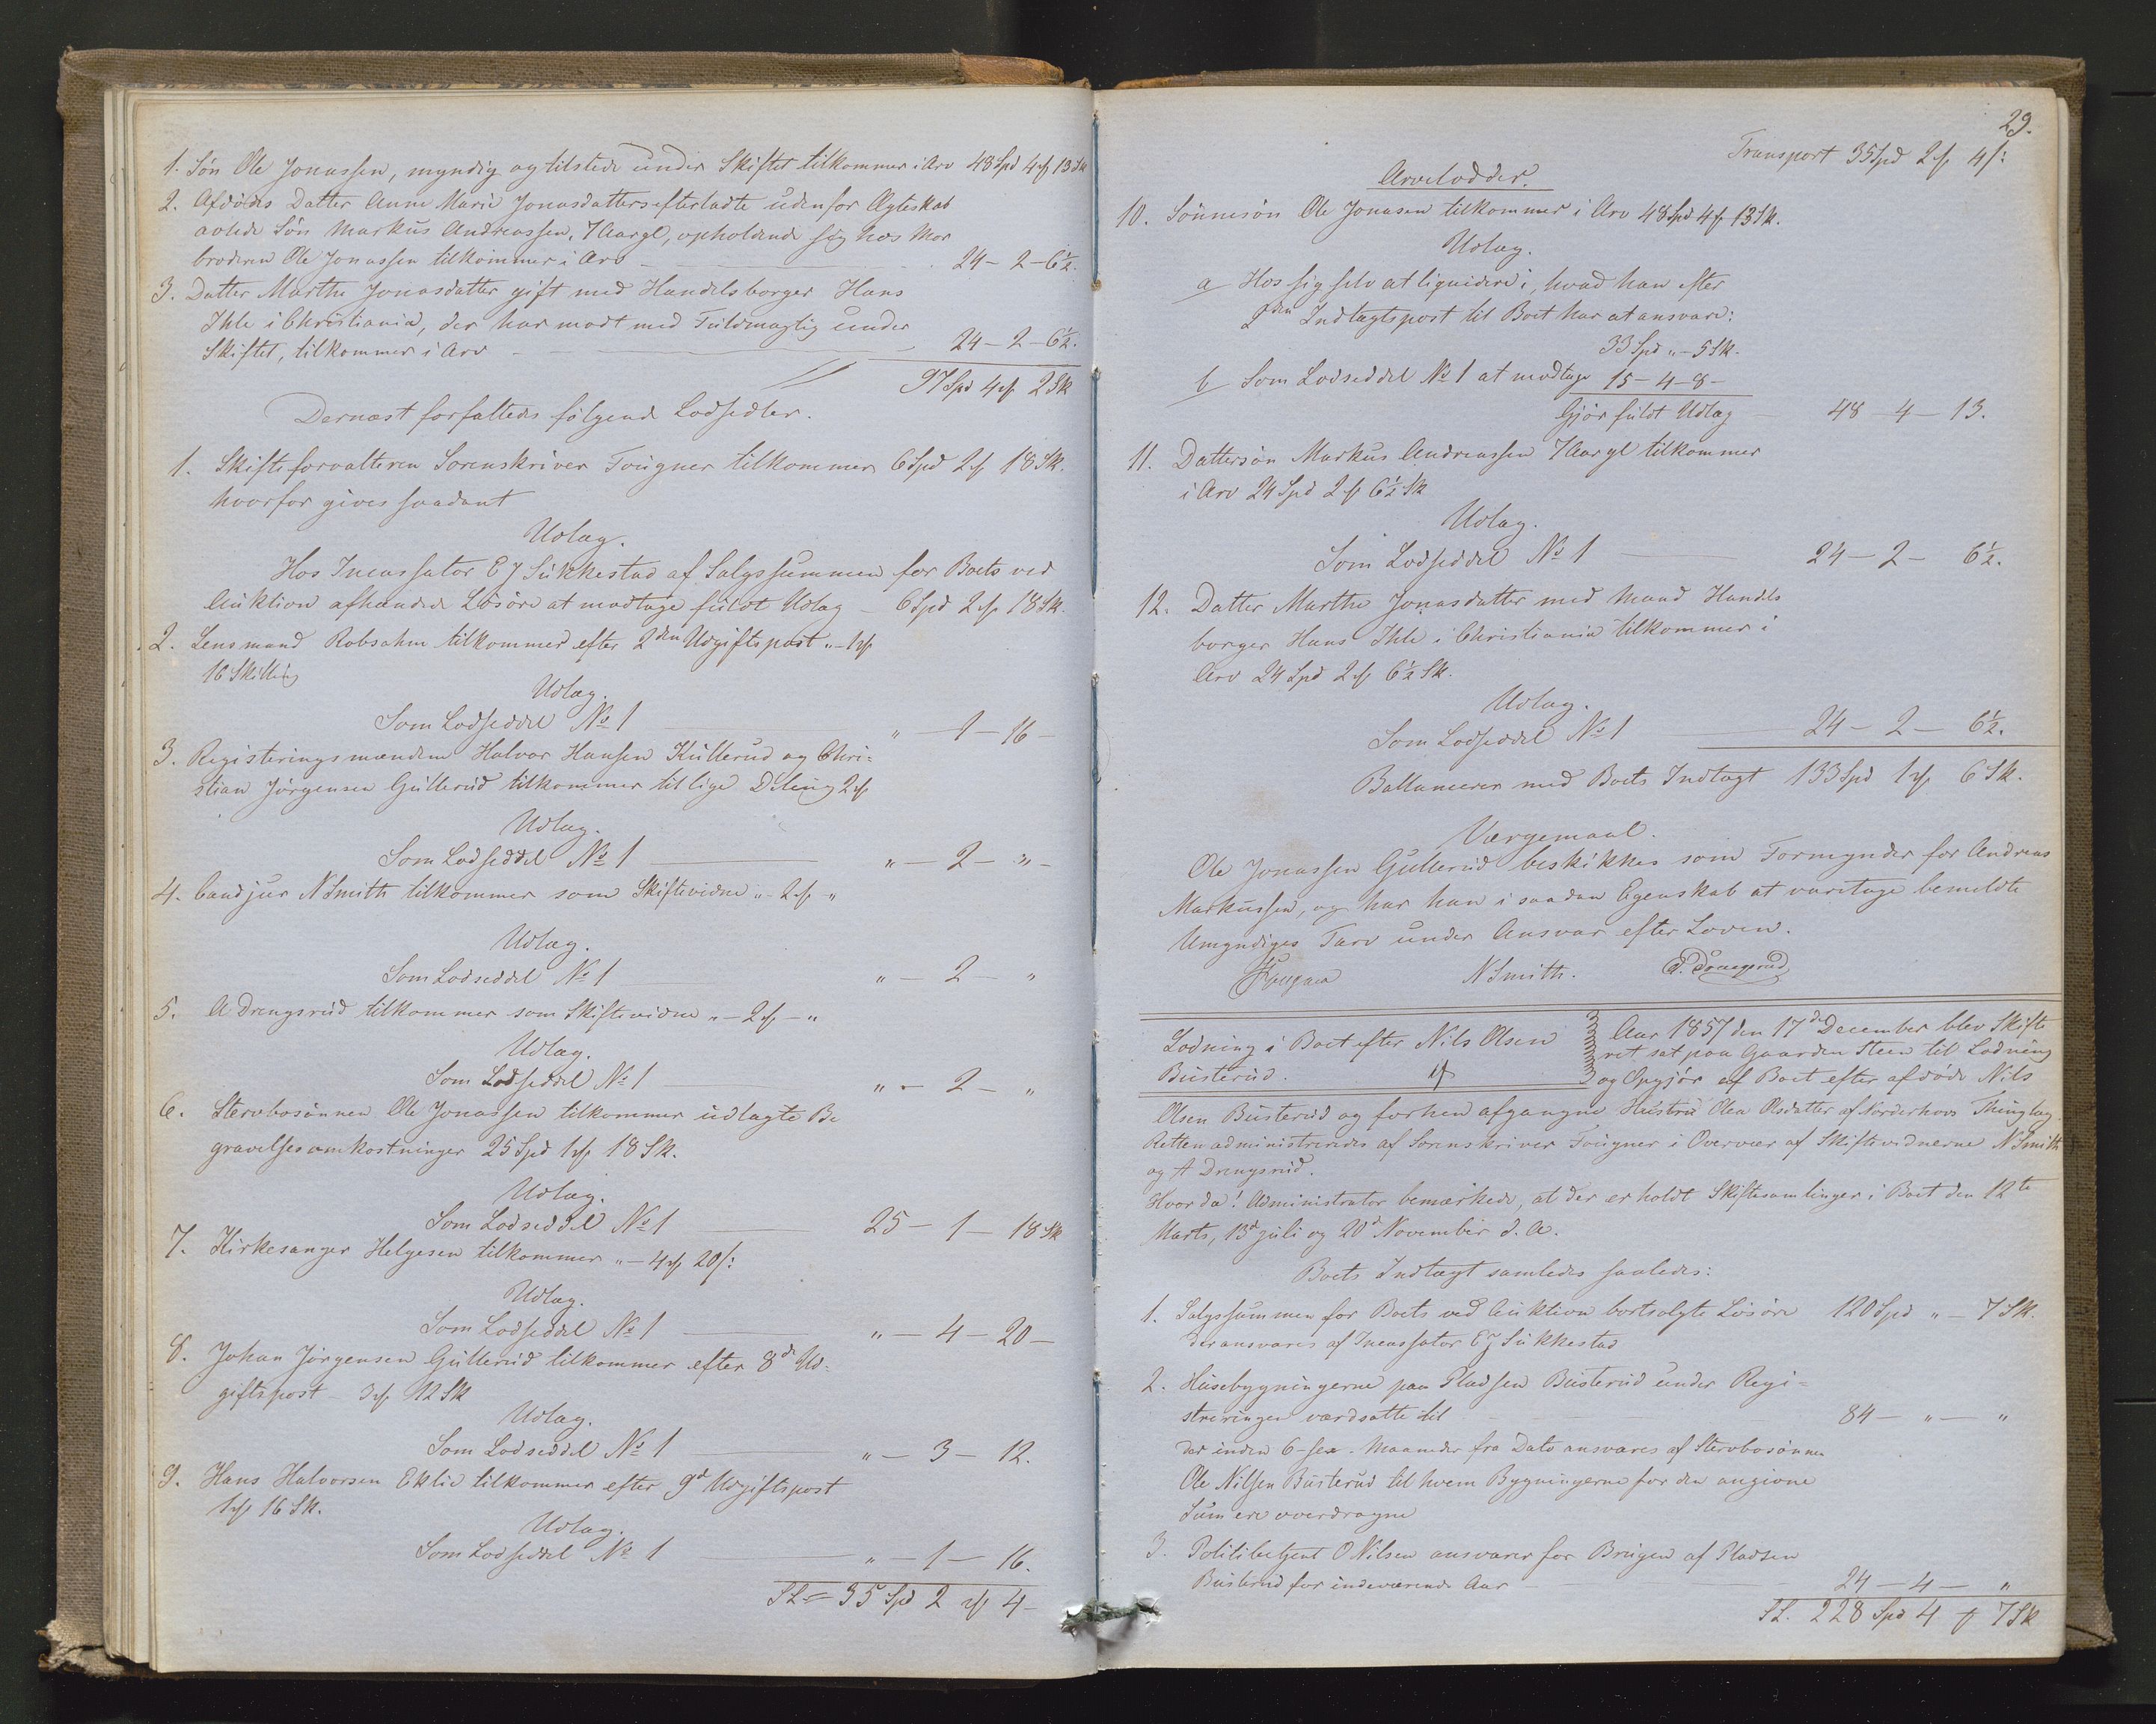 1. Søn Ole Jonassen, myndig og tilstede under Skiftet tilkommer i Arv 48 Spd 4 ₰ 13 Sk
2. Afdødes Datter Anne Marie Jonasdatters efterladte udenfor Ægteskab
avlede Søn Markus Andreassen, 7 Aar gl, opholdende sig hos Mor
broderen Ole Jonassen tilkommer i Arv — 24 — 2 — 6½.
3. Datter Marthe Jonasdatter gift med Handelsborger Hans
Ihle i Christiania, der har mødt med Fuldmægtig under
Skiftet, tilkommer i Arv — 24 — 2 — 6½.
97 Spd 4 ₰ 2 Sk
Dernæst forfattedes følgende Lodsedler.
1. Skifteforvalteren Sorenskriver Fougner tilkommer 6 Spd 2 ₰ 18 Sk.
hvorfor gives saadant
Udlæg.
Hos Incassator E J Sukkestad af Salgssummen for Boets ved
Auktion afhændede Løsøre at modtage fuldt Udlæg — 6 Spd 2 ₰ 18 Sk.
2. Lensmand Robsahm tilkommer efter 2den Udgiftspost „ — 1 ₰
16 Skilling
Udlæg.
Som Lodseddel No 1 — „ — 1 — 16 —
3. Registeringsmændene Halvor Hansen Kullerud og Chri-
stian Jørgensen Gullerud tilkommer til lige Deling 2 ₰
Udlæg.
Som Lodseddel No 1 — „ — 2 — „ —
4. Cand jur N Smith tilkommer som Skiftevidne „ — 2 ₰ „
Udlæg.
Som Lodseddel No 1 „ — 2 — „
5. A Drengsrud tilkommer som Skiftevidne „ — 2 ₰ — „
Udlæg.
Som Lodseddel No 1 — „ — 2 — „
6. Stervbosønnen Ole Jonassen tilkommer udlagte Be
gravelsesomkostninger 25 Spd 1 ₰ 18 Sk.
Udlæg.
Som Lodseddel No 1 — 25 — 1 — 18 Sk
7. Kirkesanger Helgesen tilkommer „ — 4 ₰ 20 s:
Udlæg.
Som Lodseddel No 1 — „ — 4 — 20 —
8. Johan Jørgensen Gullerud tilkommer efter 8de Ud-
giftspost — 3 ₰ 12 Sk
Udlæg.
Som Lodseddel No 1 — „ — 3 — 12.
9. Hans Halvorsen Eklie tilkommer efter 9d Udgiftspost
1 ₰ 16 Sk.
Udlæg.
Som Lodseddel No 1 — „ — 1 — 16.
SL = 35 Spd 2 ₰ 4 —
29.
Transport 35 Spd 2 ₰ 4 s:
Arvelodder.
10. Sønnesøn Ole Jonasen tilkommer i Arv 48 Spd 4 ₰ 13 Sk.
Udlæg.
a Hos sig selv at liquidere i, hvad han efter
2den Indtægtspost til Boet har at ansvare:
33 Spd „ — 5 Sk.
b Som Lodseddel No 1 at modtage 15 — 4 — 8 —
Gjør fuldt Udlæg 48 — 4 — 13.
11. Dattersøn Markus Andreassen 7 Aar gl tilkommer
i Arv 24 Spd 2 ₰ 6½ Sk
Udlæg.
Som Lodseddel No 1 — 24 — 2 — 6½.
12. Datter Marthe Jonasdatter med Mand Handels
borger Hans Ihle i Christiania tilkommer i
Arv 24 Spd 2 ₰ 6½ Sk.
Udlæg.
Som Lodseddel No 1 — 24 — 2 — 6½.
Ballancerer med Boets Indtægt 133 Spd 1 ₰ 6 Sk.
Værgemaal.
Ole Jonassen Gullerud beskikkes som Formynder for Andreas
Markussen, og har han i saadan Egenskab at varetage bemeldte
Umyndiges Tarv under Ansvar efter Loven.
Fougner N Smith. A. Drengsrud
Lodning i Boet efter Nils Olsen
Busterud.
Aar 1857 den 17de December blev Skifte
ret sat paa Gaarden Steen til Lodning
og Opgjør af Boet efter afdøde Nils
Olsen Busterud og forhen afgangne Hustru Olea Olsdatter af Norderhovs Thinglag.
Retten administreredes af Sorenskriver Fougner i Overvær af Skiftevidnerne N Smith
og A Drengsrud.
Hvor da! Administrator bemærkede, at der er holdt Skiftesamlinger i Boet den 12te
Marts, 13d juli og 20d November d. A.
Boets Indtægt samledes saaledes:
1. Salgssummen for Boets ved Auktion bortsolgte Løsøre 120 Spd „ — 7 Sk.
der ansvares af Incassator E J Sukkestad
2. Husebygningerne paa Pladsen Busterud under Regi-
streringen værdsatte til 84 — „ — „
der inden 6 — sex — Maaneder fra Dato ansvares af Stervbosønnen
Ole Nilsen Busterud til hvem Bygningerne for den angivne
Sum ere overdragne
3. Politibetjent O Nilsen ansvarer for Brugen af Pladsen
Busterud for indeværende Aar 24 — 4 — „
SL. 228 Spd 4 ₰ 7 Sk